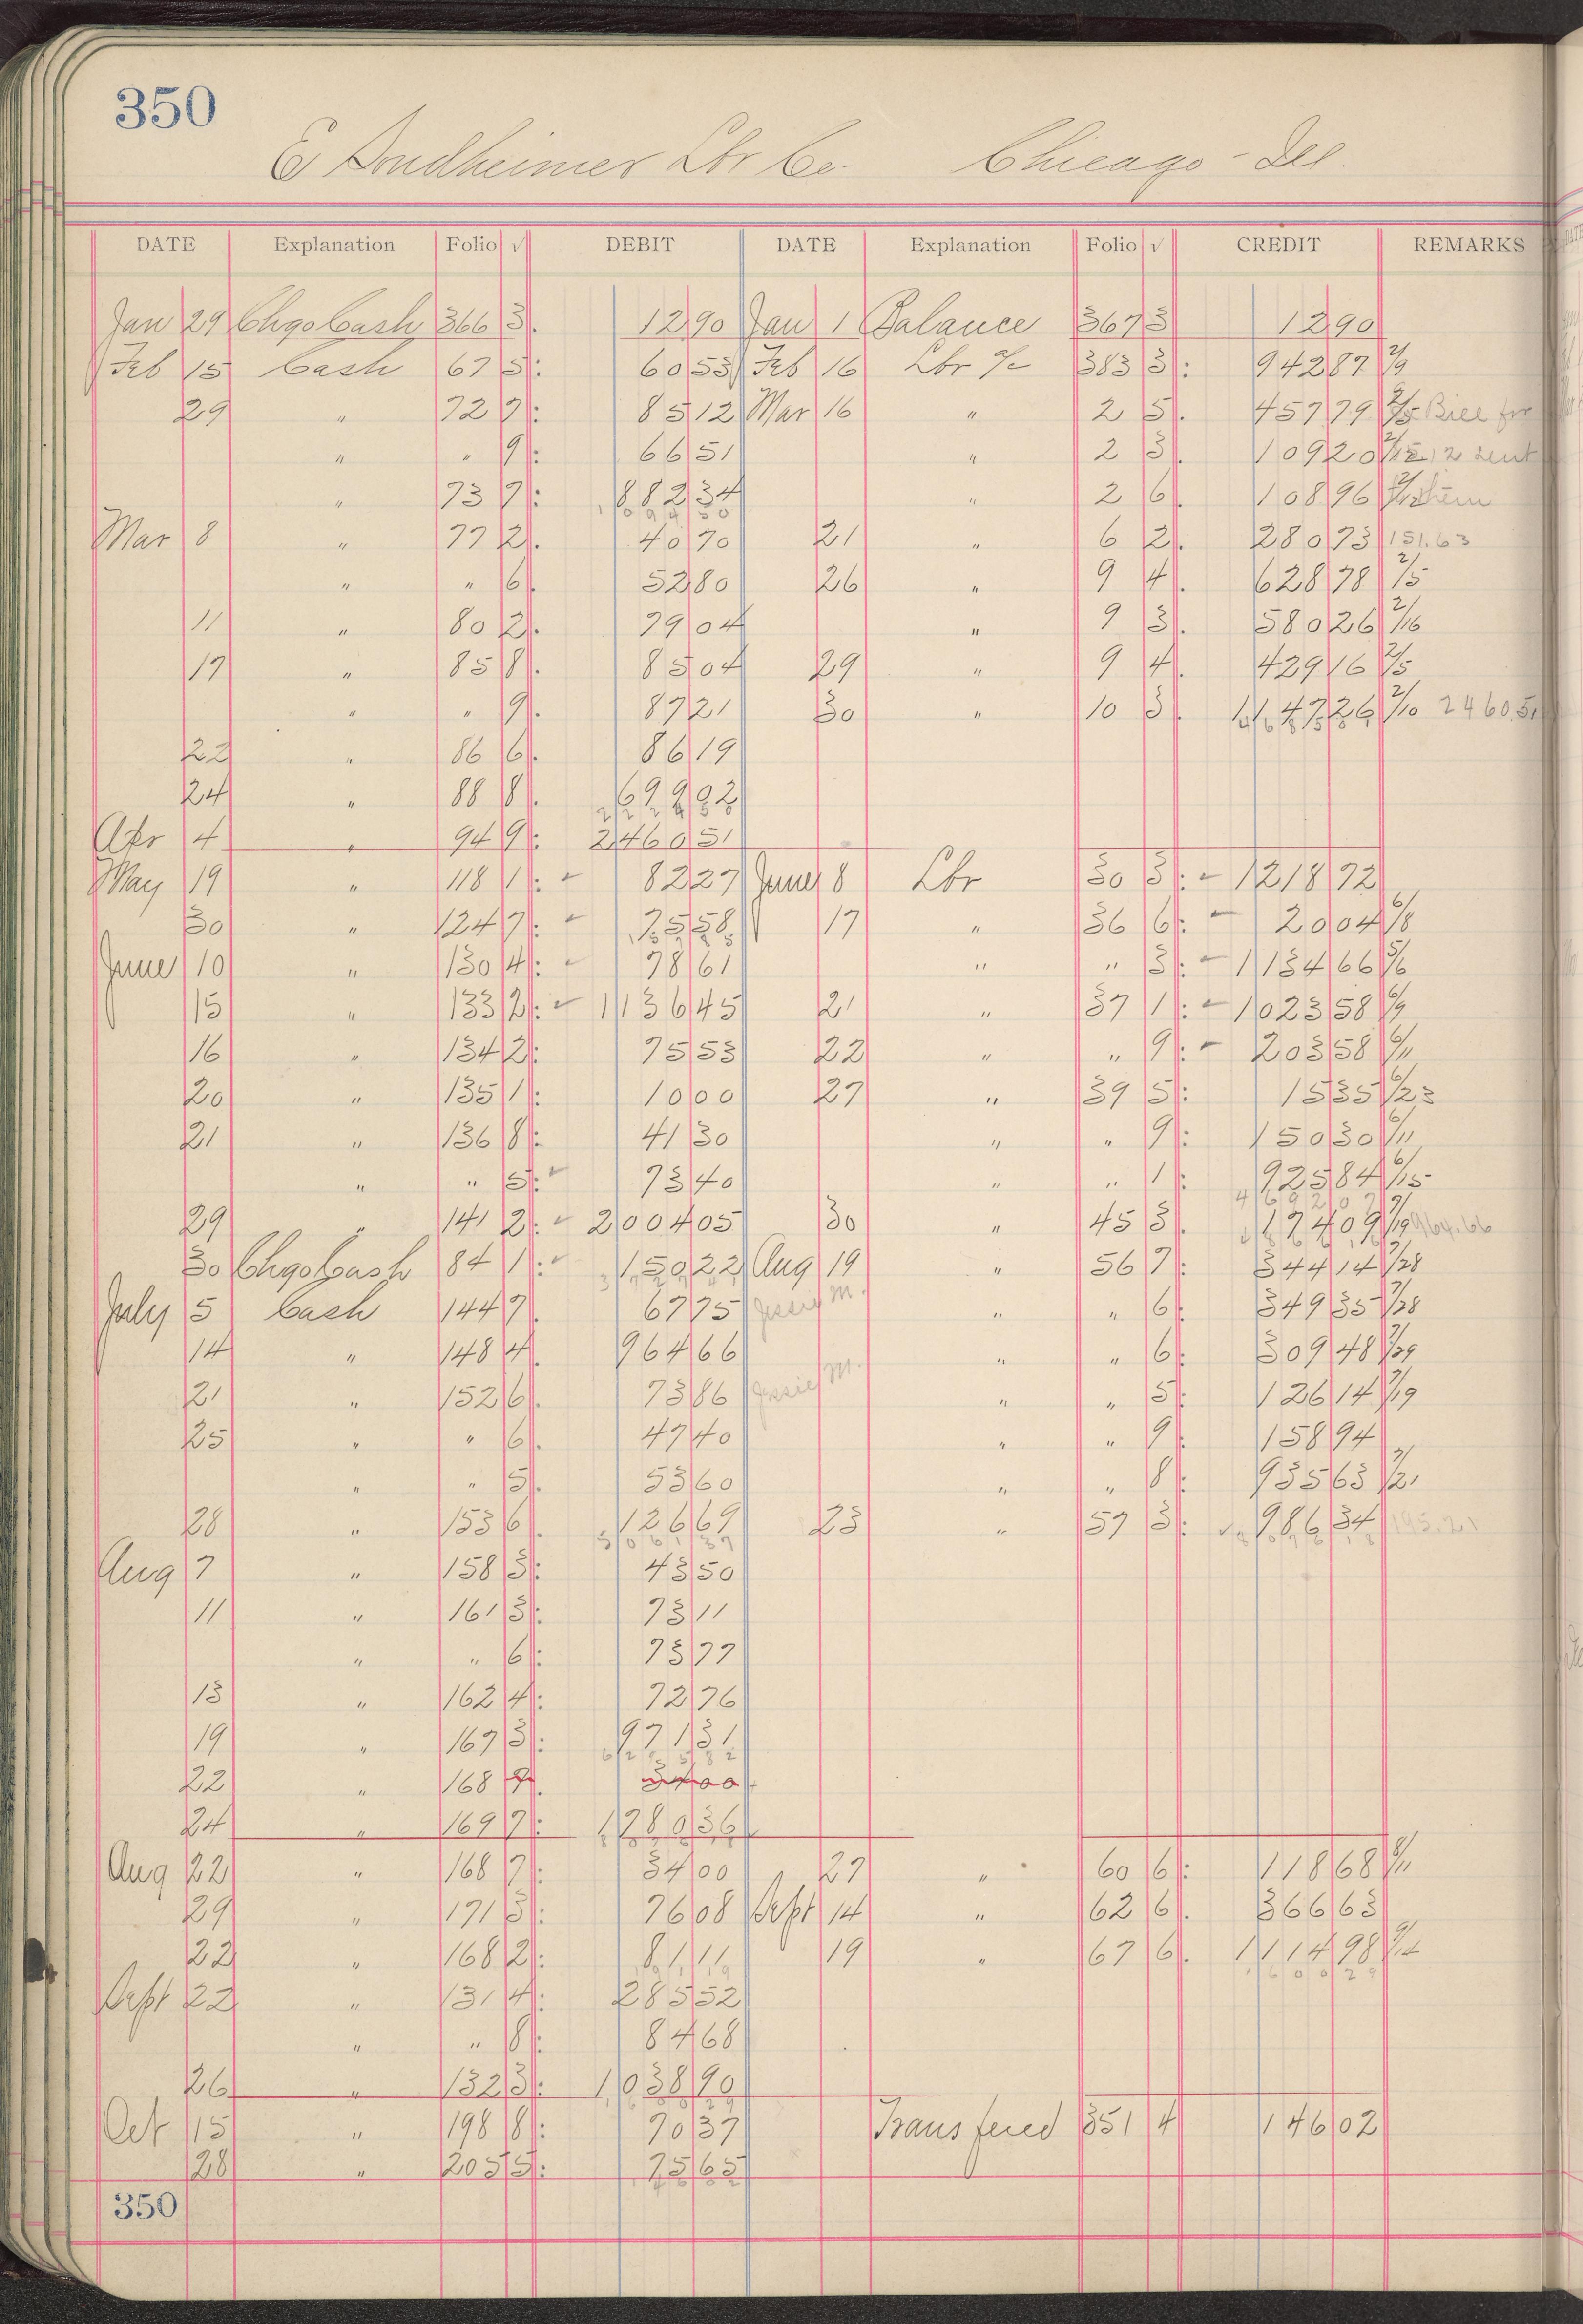 350
E Sondheimer Lbr Co- Chicago - Ill.
DATE Explanation Folio √ DEBIT DATE Explanation Folio √ CREDIT REMARKS
Jan 29 Chgo Cash 366 3. 12 90 Jan 1 Balance 367 3 12 90
Feb 15 Cash 67 5: 60 53 Feb 16 Lbr a/c 383 3: 942 87 2/9
29 " 72 7: 85 12 Mar 16 " 2 5. 457 79 2/5 Bill for
" " 9: 66 51 " 2 3. 109 20 2/15 12 sent
" 73 7: 882 34 " 2 6. 108 96 2/12 them
1094 50
Mar 8 " 77 2. 40 70 21 " 6 2. 280 73 151.63
" " 6. 52 80 26 " 9 4. 628 78 2/5
11 " 80 2. 79 04 " 9 3. 580 26 2/16
17 " 85 8. 85 04 29 " 9 4. 429 16 2/5
" " 9. 87 21 30 " 10 3. 1147 26 2/10 2460.51
22 " 86 6. 86 19
24 " 88 8. 699 02
Apr 4 " 94 9: 2460 51
May 19 " 118 1: ✓ 82 27 June 8 Lbr 30 3: ✓ 1218 72
30 " 124 7: ✓ 75 58 17 " 36 6: ✓ 20 04 6/8
June 10 " 130 4: ✓ 78 61 " " 3: ✓ 1134 66 5/6
15 " 133 2: ✓ 1136 45 21 " 37 1: ✓ 1023 58 6/9
16 " 134 2: 75 53 22 " " 9: ✓ 203 58 6/11
20 " 135 1: 10 00 27 " 39 5: 15 35 6/23
21 " 136 8: 41 30 " " 9: 150 30 6/11
" " 5: ✓ 73 40 " " 1: 925 84 6/15
4692 07
29 " 141 2: ✓ 2004 05 30 " 45 3. 174 09 7/19 964.66
30 Chgo Cash 84 1: ✓ 150 22 Aug 19 " 56 7: 344 14 7/28
July 5 Cash 144 7. 67 75 Jessie M. " " 6: 349 35 7/28
14 " 148 4. 964 66 " " 6: 309 48 7/29
21 " 152 6. 73 86 Jessie M. " " 5: 126 14 7/19
25 " " 6. 47 40 " " 9: 158 94
" " 5. 53 60 " " 8: 935 63 7/21
28 " 153 6. 126 69 23 " 57 3: ✓ 986 34 195.21
5061 37
Aug 7 " 158 3: 43 50
11 " 161 3: 73 11
" " 6: 73 77
13 " 162 4: 72 76
19 " 167 3: 971 31
22 " 168 7. 34 00
24 " 169 7: 1780 36
Aug 22 " 168 7: 34 00 27 " 60 6: 118 68 8/11
29 " 171 3: 76 08 Sept 14 " 62 6. 366 63
22 " 168 2: 81 11 19 " 67 6. 1114 98 9/12
191 19 1600 29
Sept 22 " 131 4: 285 52
" " 8: 84 68
26 " 132 3: 1038 90
1600 29
Oct 15 " 198 8: 70 37 Transfered 351 4 146 02
28 " 205 5: 75 65
146 02
350